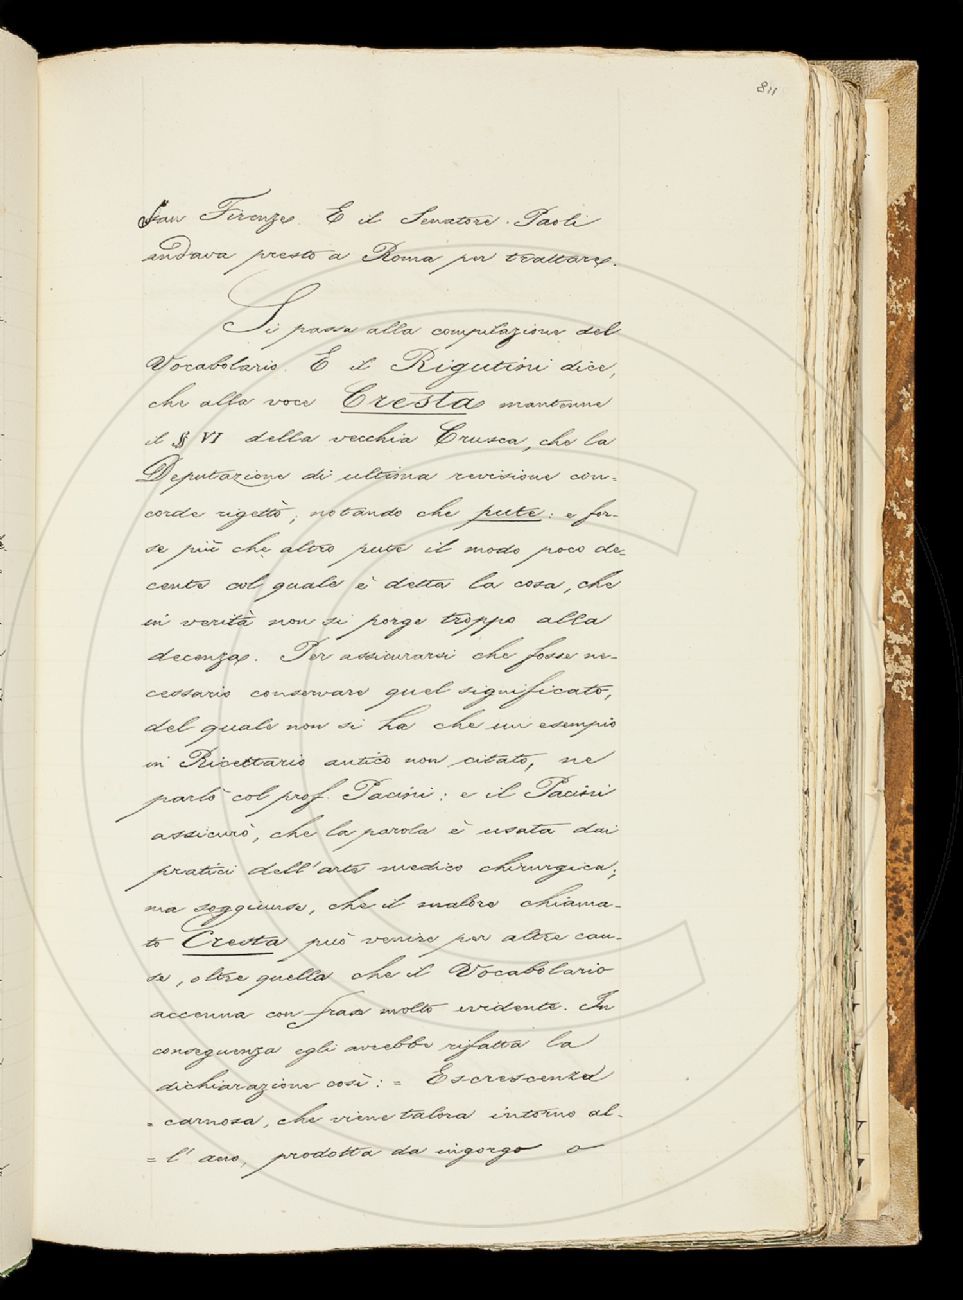 811
San Firenze. E il Senatore Paoli
andava presto a Roma per trattare.
Si passa alla compilazione del
Vocabolario. E il Rigutini dice,
che alla voce Cresta mantenne
il § VI della vecchia Crusca, che la
Deputazione di ultima revisione con-
corde rigettò, notando che pute: e for-
se più che altro pute il modo poco de-
cente col quale è detta la cosa, che
in verità non si porge troppo alla
decenza. Per assicurarsi che fosse ne-
cessario conservare quel significato,
del quale non si ha che un esempio
in Ricettario antico non citato, ne
parlò col prof. Pacini: e il Pacini
assicurò, che la parola è usata dai
pratici dell'arte medico chirurgica;
ma soggiunse, che il malore chiama-
to Cresta può venire per altre cau-
se, oltre quella che il Vocabolario
accenna con frase molto evidente. In
conseguenza egli avrebbe rifatta la
dichiarazione così: = Escrescenza
= carnosa, che viene talora intorno al-
= l'ano, prodotta da ingorgo o